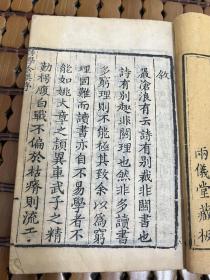 敘
嚴滄浪有云詩有別裁非關書也
詩有別趣非關理也然非多讀書
多窮理則不能極其致余以為窮
理固難而讀書亦自不易學者不
能如姚大章之顓異車武子之精
勤將廈白戰不偏於枯瘠則流工
兩儀堂藏板